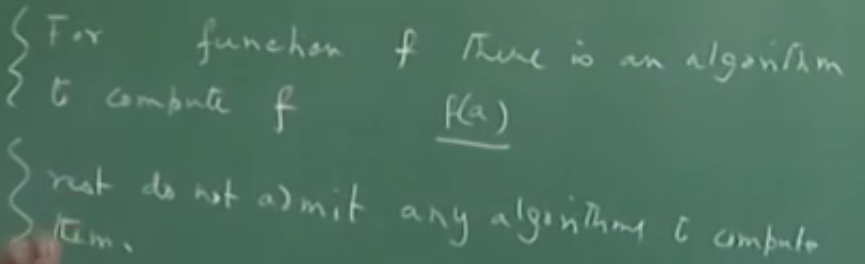 For function f there is an algorithm
to compute f f(a)
rest do not admit any algorithms to compute
them.